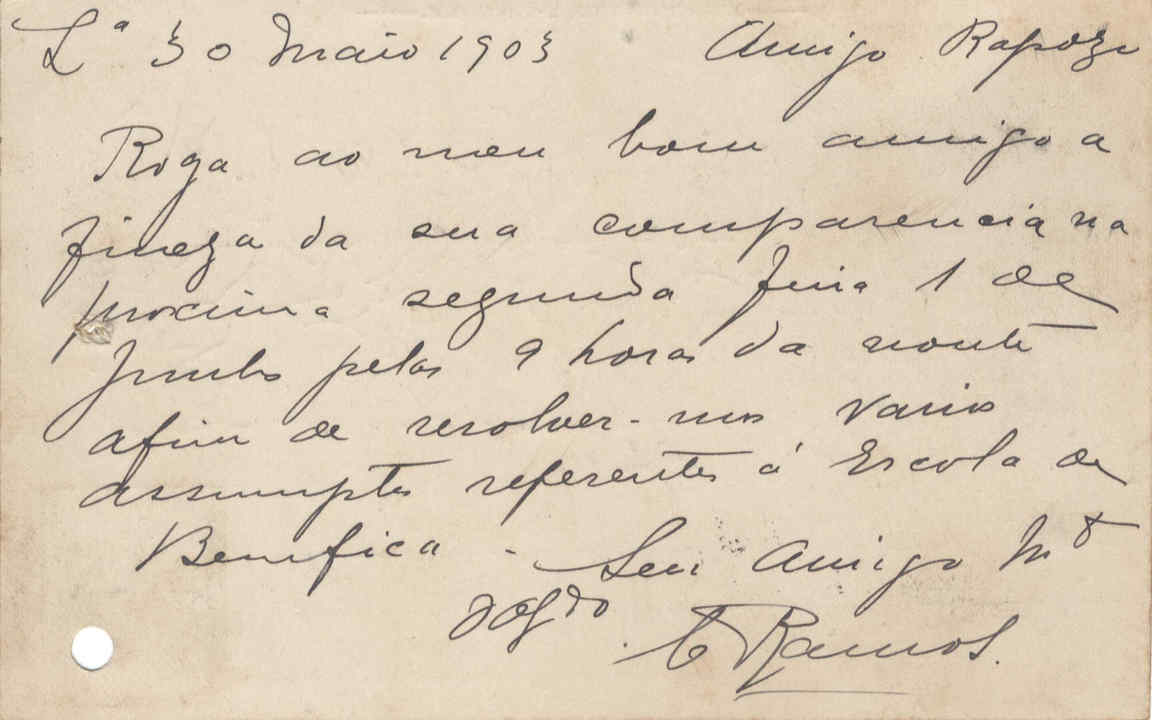 Lª 30 Maio 1903 Amigo Rapozo
Roga ao meu bom amigo a
fineza da sua comparencia na
proxima segunda feira 1 de
Junho pelas 9 horas da noute
afim de resolver-mos varios
assumptos referentes á Escola de
Bemfica -
Seu Amigo Mto
Obgdo
C Ramos.